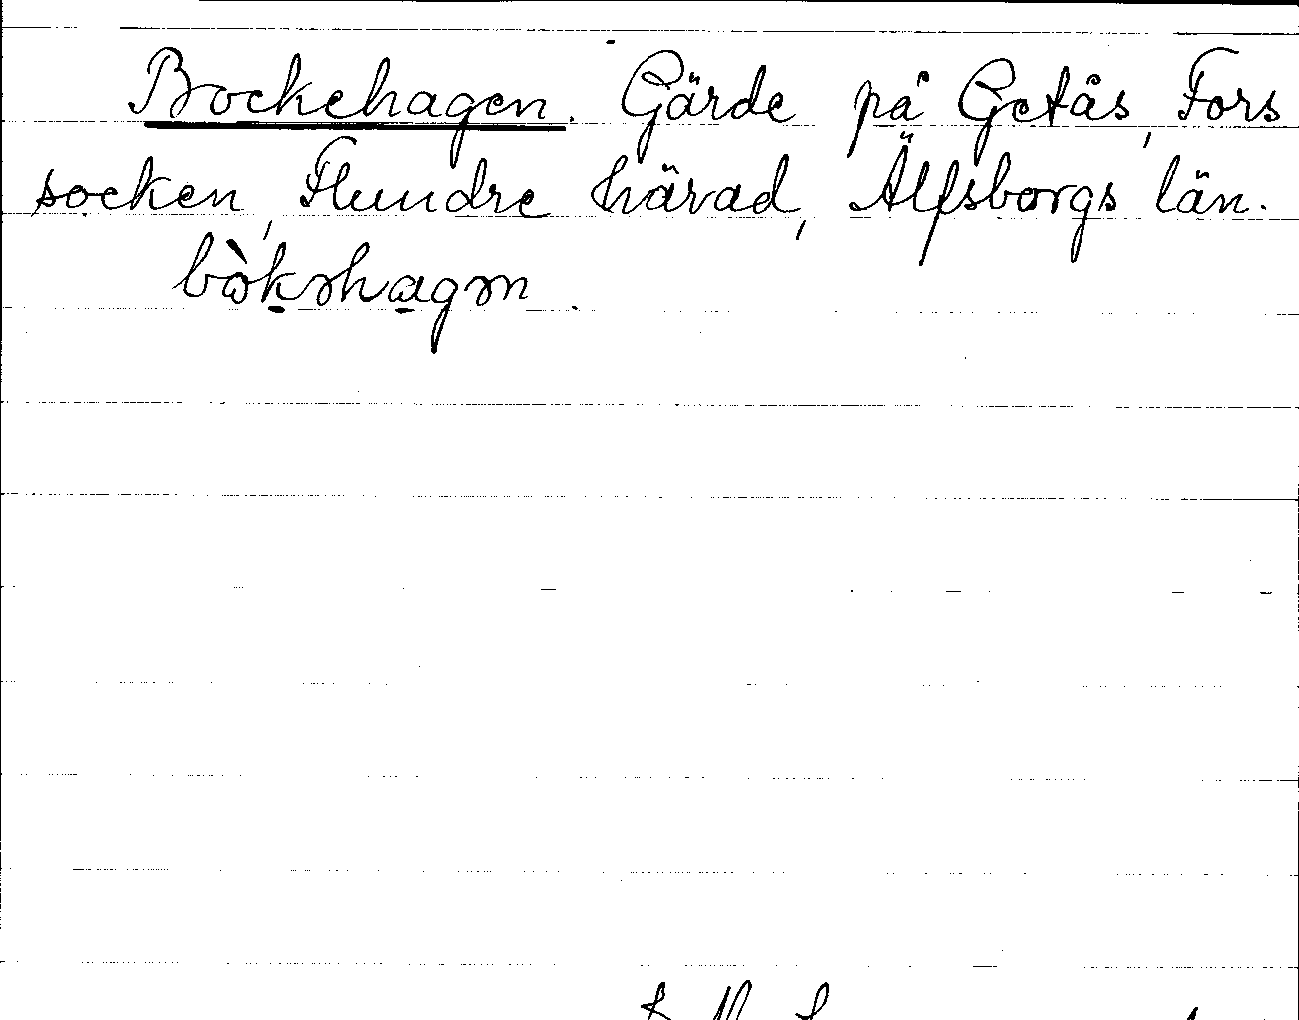 Bockehagen. Gärde på Getås, Fors
socken, Flundre härad, Älfsborgs län.